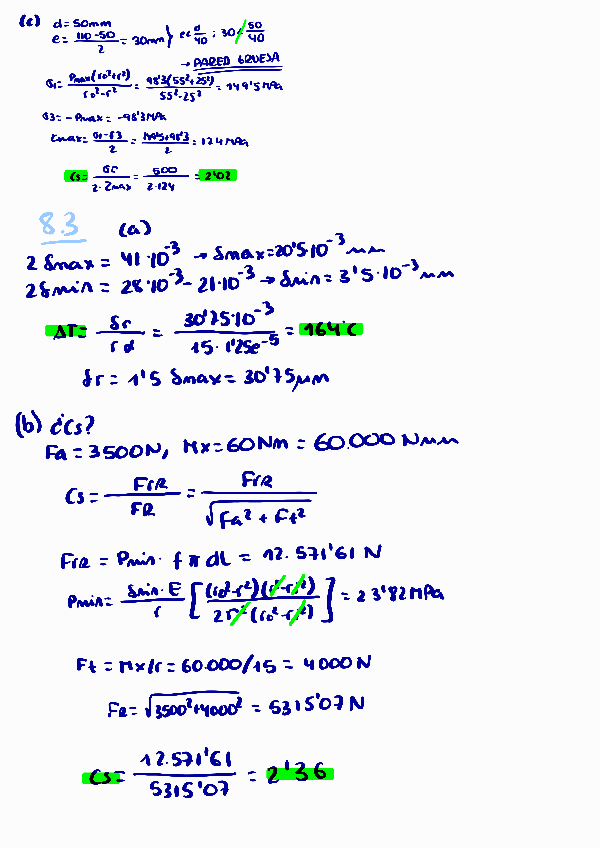 (c) d=50mm
e = (110-50)/2 = 30mm } e< d/40 ; 30< 50/40
→ PARED GRUESA
σ1 = Pmax(ro²+r²)/(ro²-r²) = 98'3(55²+25²)/(55²-25²) = 149'5 MPa
σ3 = -Pmax = -98'3 MPa
τmax = (σ1-σ3)/2 = (149'5+98'3)/2 = 124 MPa
Cs = σr/(2·τmax) = 500/(2·124) = 2'02
8.3 (a)
2 δmax = 41·10⁻³ → δmax=20'5·10⁻³ mm
2 δmin = 28·10⁻³ - 21·10⁻³ → δmin = 3'5·10⁻³ mm
ΔT = δr/(r α) = 30'75·10⁻³/(15·1'25e⁻⁵) = 164°C
δr = 1'5 δmax = 30'75 µm
(b) ¿Cs?
Fa = 3500N, Mx=60Nm = 60.000 Nmm
Cs = FrR/FR = FrR/√(Fa² + Ft²)
FrR = Pmin· f π dL = 12.571'61 N
Pmin = δmin·E/r [(ro²-r²)(r²-ri²)/2r²(ro²-ri²)] = 23'82 MPa
Ft = Mx/r = 60.000/15 = 4000 N
FR = √(3500²+4000²) = 5315'07 N
Cs = 12.571'61/5315'07 = 2'36